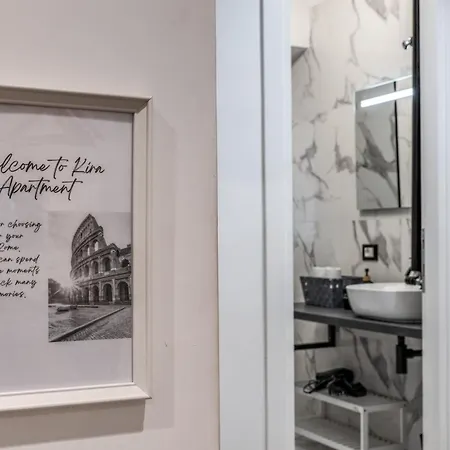 elcome to Kira
Apartment
r choosing
r your
Rome,
can spend
moments
ck many
mories.